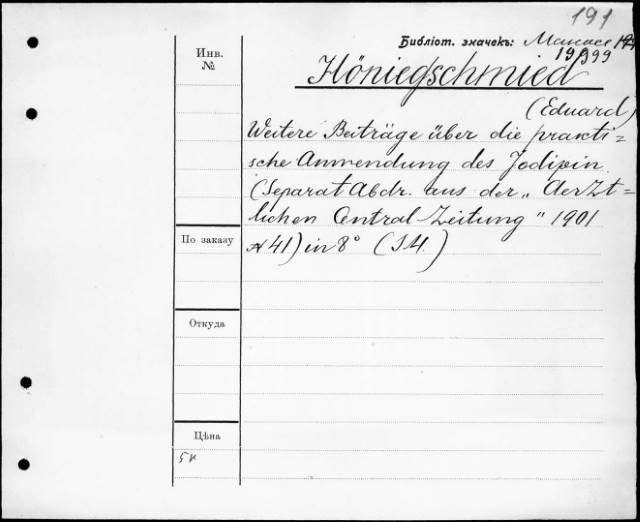 191
Библіот. значекъ: Манасс
19399
Инв.
№
Höniegschmied
(Eduard)
Weitere Beiträge über die prakti=
sche Anwendung des Jodipin
(Separat Abdr. aus der „Aerzt=
lichen Central-Zeitung" 1901
№ 41) in 8° (S.4.)
По заказу
Откуда
Цѣна
5к